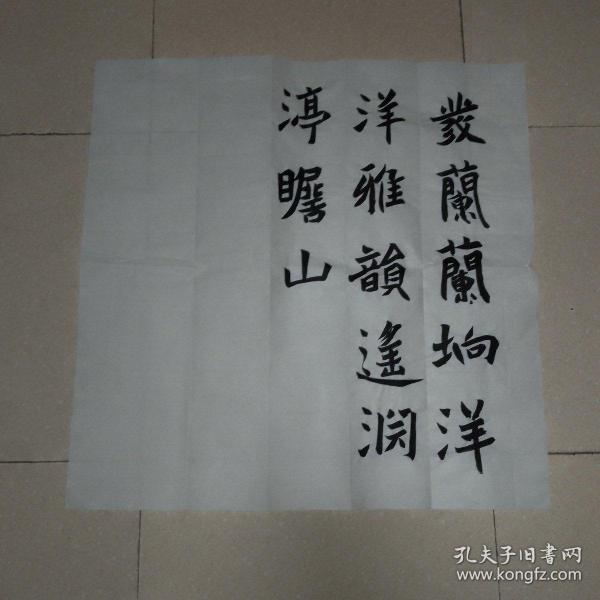 蘭蘭坰洋
洋雅韻遙润
渟瞻山
孔夫子旧書网
www.kongfz.com